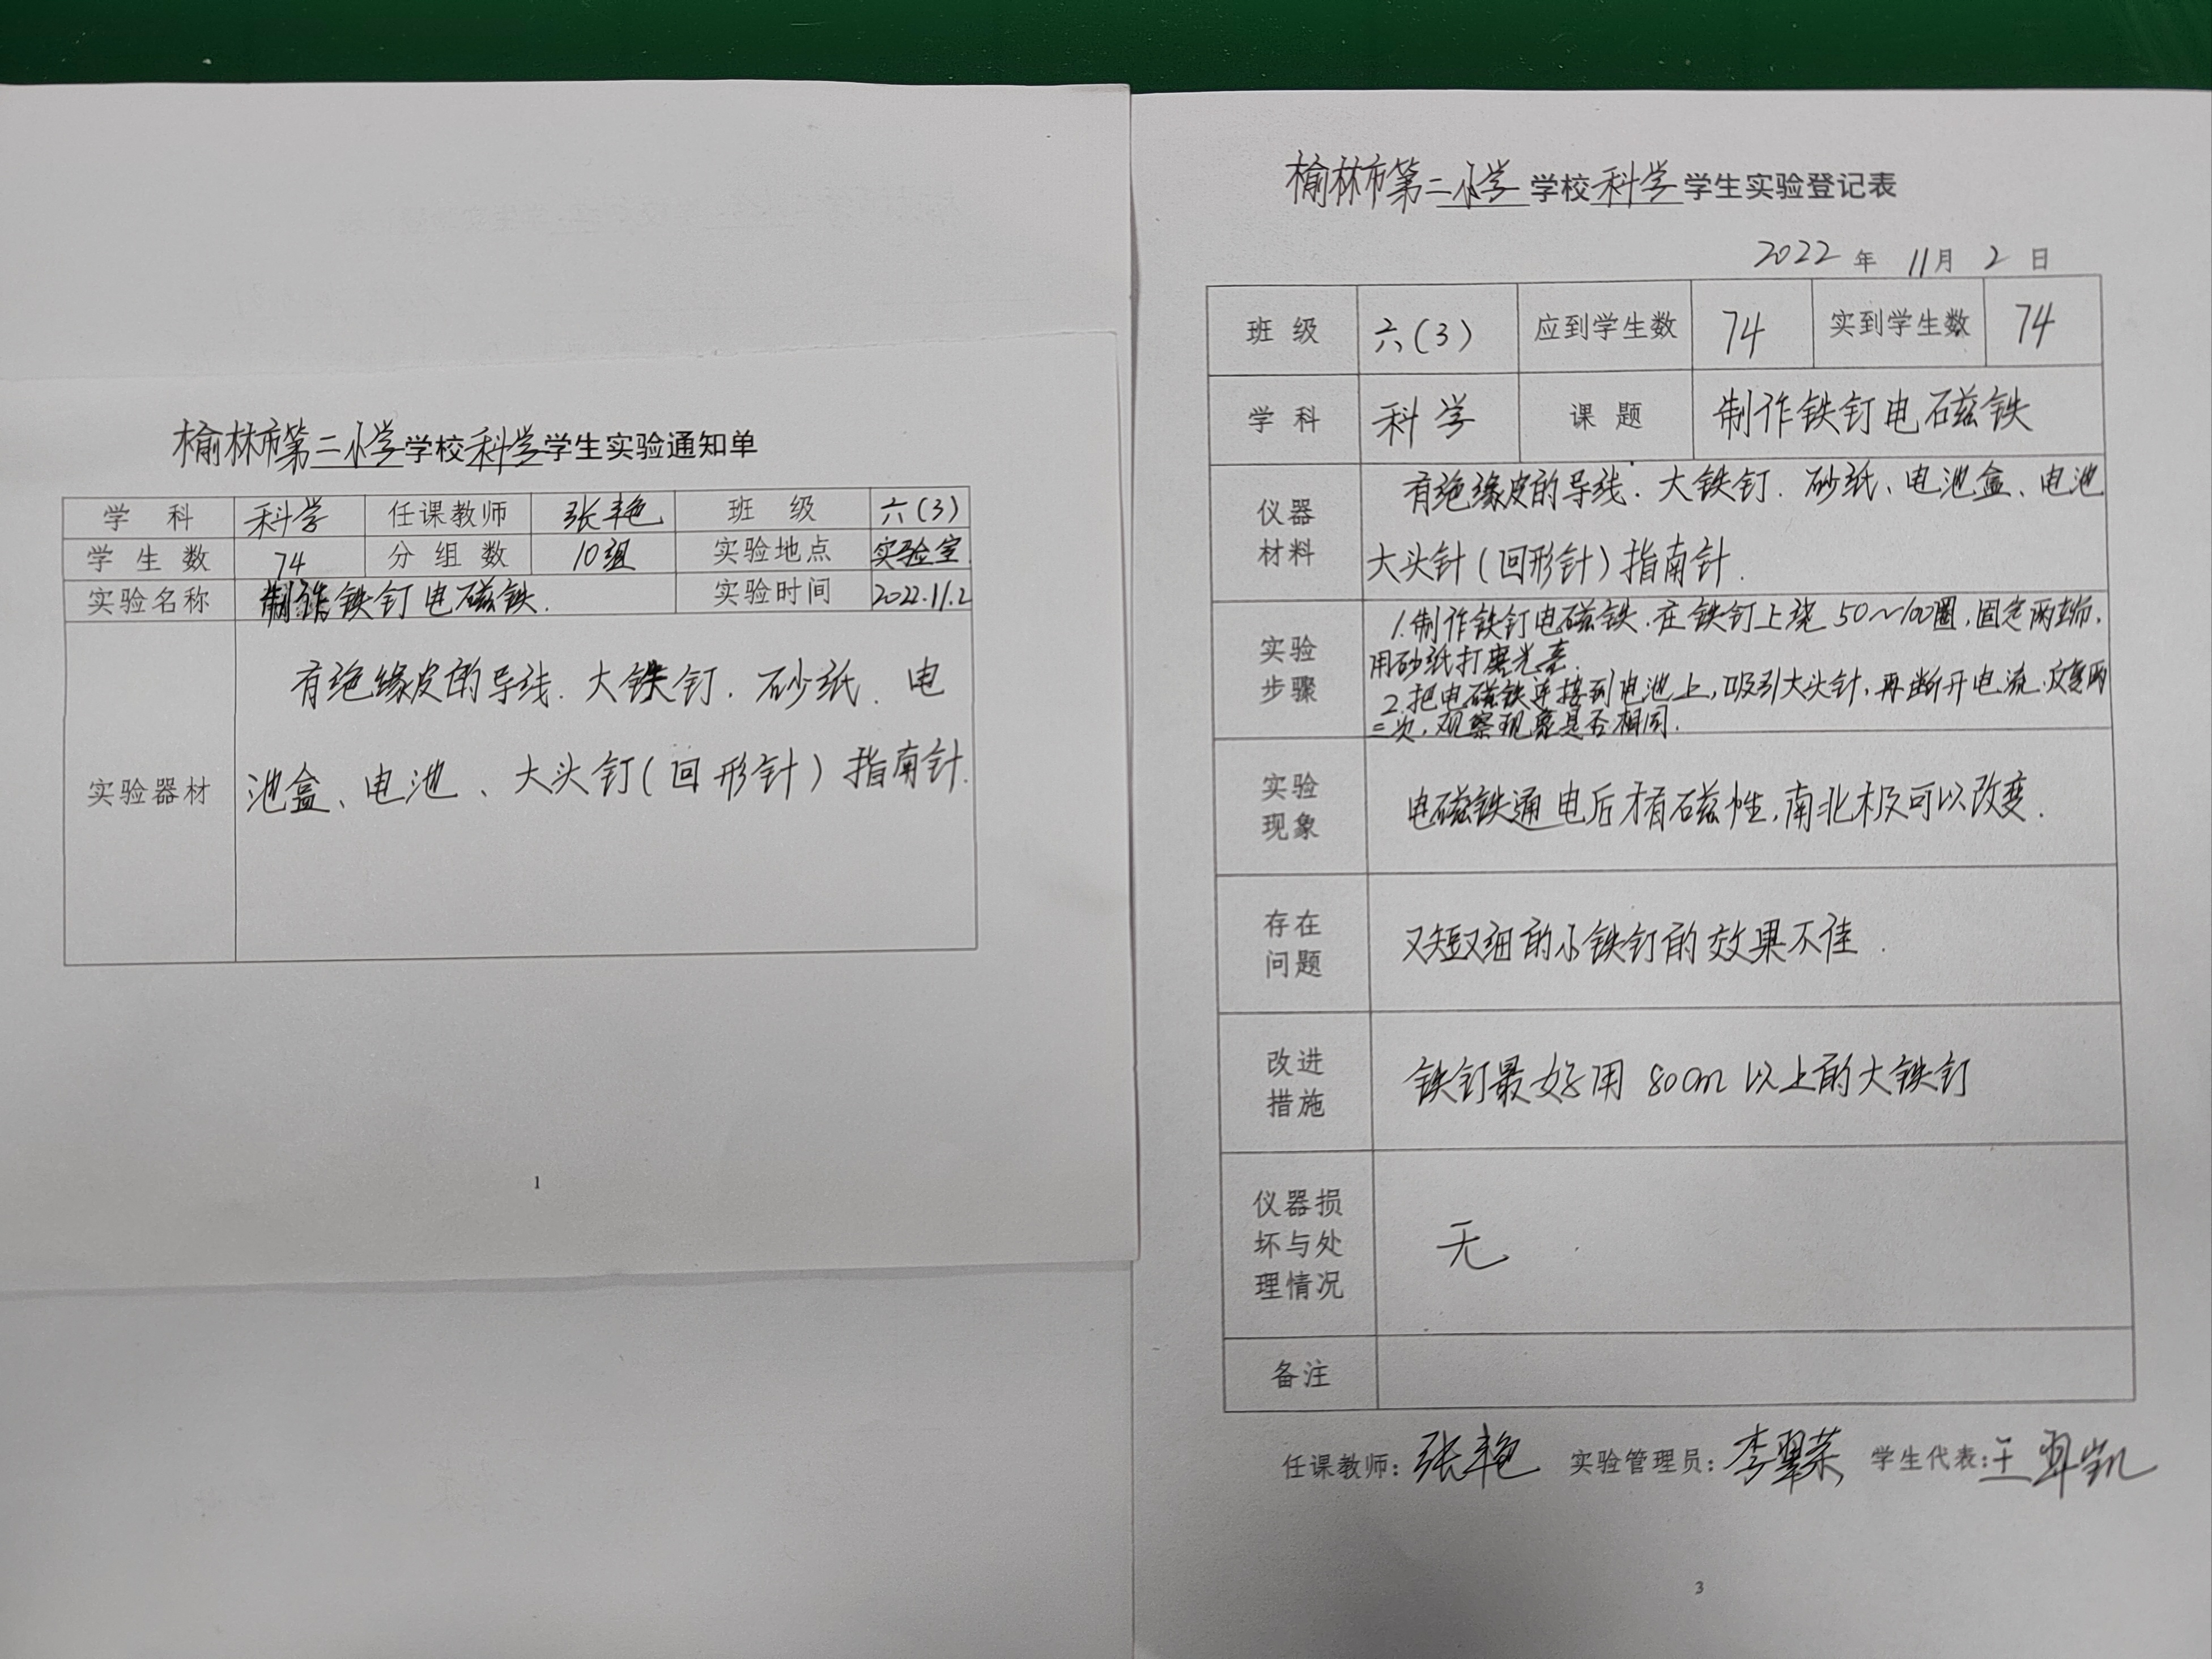 榆林市第二小学学校科学学生实验通知单
学 科 科学 任课教师 张艳 班 级 六(3)
学 生 数 74 分 组 数 10组 实验地点 实验室
实验名称 制作铁钉电磁铁. 实验时间 2022.11.2
有绝缘皮的导线.大铁钉.砂纸、电
实验器材 池盒、电池、大头钉(回形针)指南针.
1
榆林市第二小学学校科学学生实验登记表
2022 年 11月 2 日
班 级 六(3) 应到学生数 74 实到学生数 74
学 科 科学 课 题 制作铁钉电磁铁
仪器 有绝缘皮的导线.大铁钉.砂纸、电池盒、电池
材料 大头针(回形针)指南针.
1.制作铁钉电磁铁.在铁钉上绕50~100圈,固定两端,
实验 用砂纸打磨光亮.
步骤 2.把电磁铁连接到电池上,吸引大头针,再断开电流.反复两
三次,观察现象是否相同.
实验
现象 电磁铁通电后才有磁性,南北极可以改变.
存在
问题 又短又细的小铁钉的效果不佳.
改进
措施 铁钉最好用80cm以上的大铁钉
仪器损
坏与处 无
理情况
备注
任课教师:张艳 实验管理员:李翠荣 学生代表:王
3